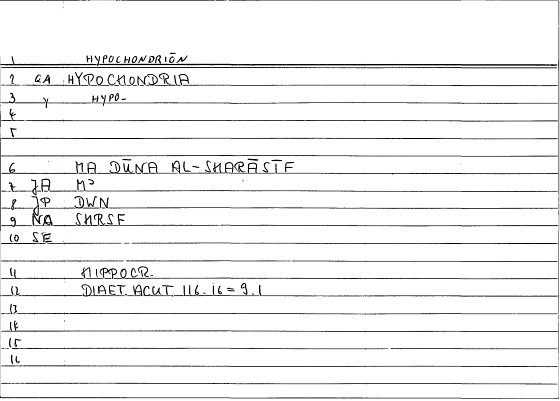 1 HYPOCHONDRIŌN
2 GA HYPOCHONDRIA
3 Y HYPO-
4
5
6 MA DŪNA AL-SHARĀSĪF
7 JA Mᵓ
8 JP DWN
9 NA SHRSF
10 SE
11 HIPPOCR.
12 DIAET. ACUT. 116.16 = 9.1
13
14
15
16